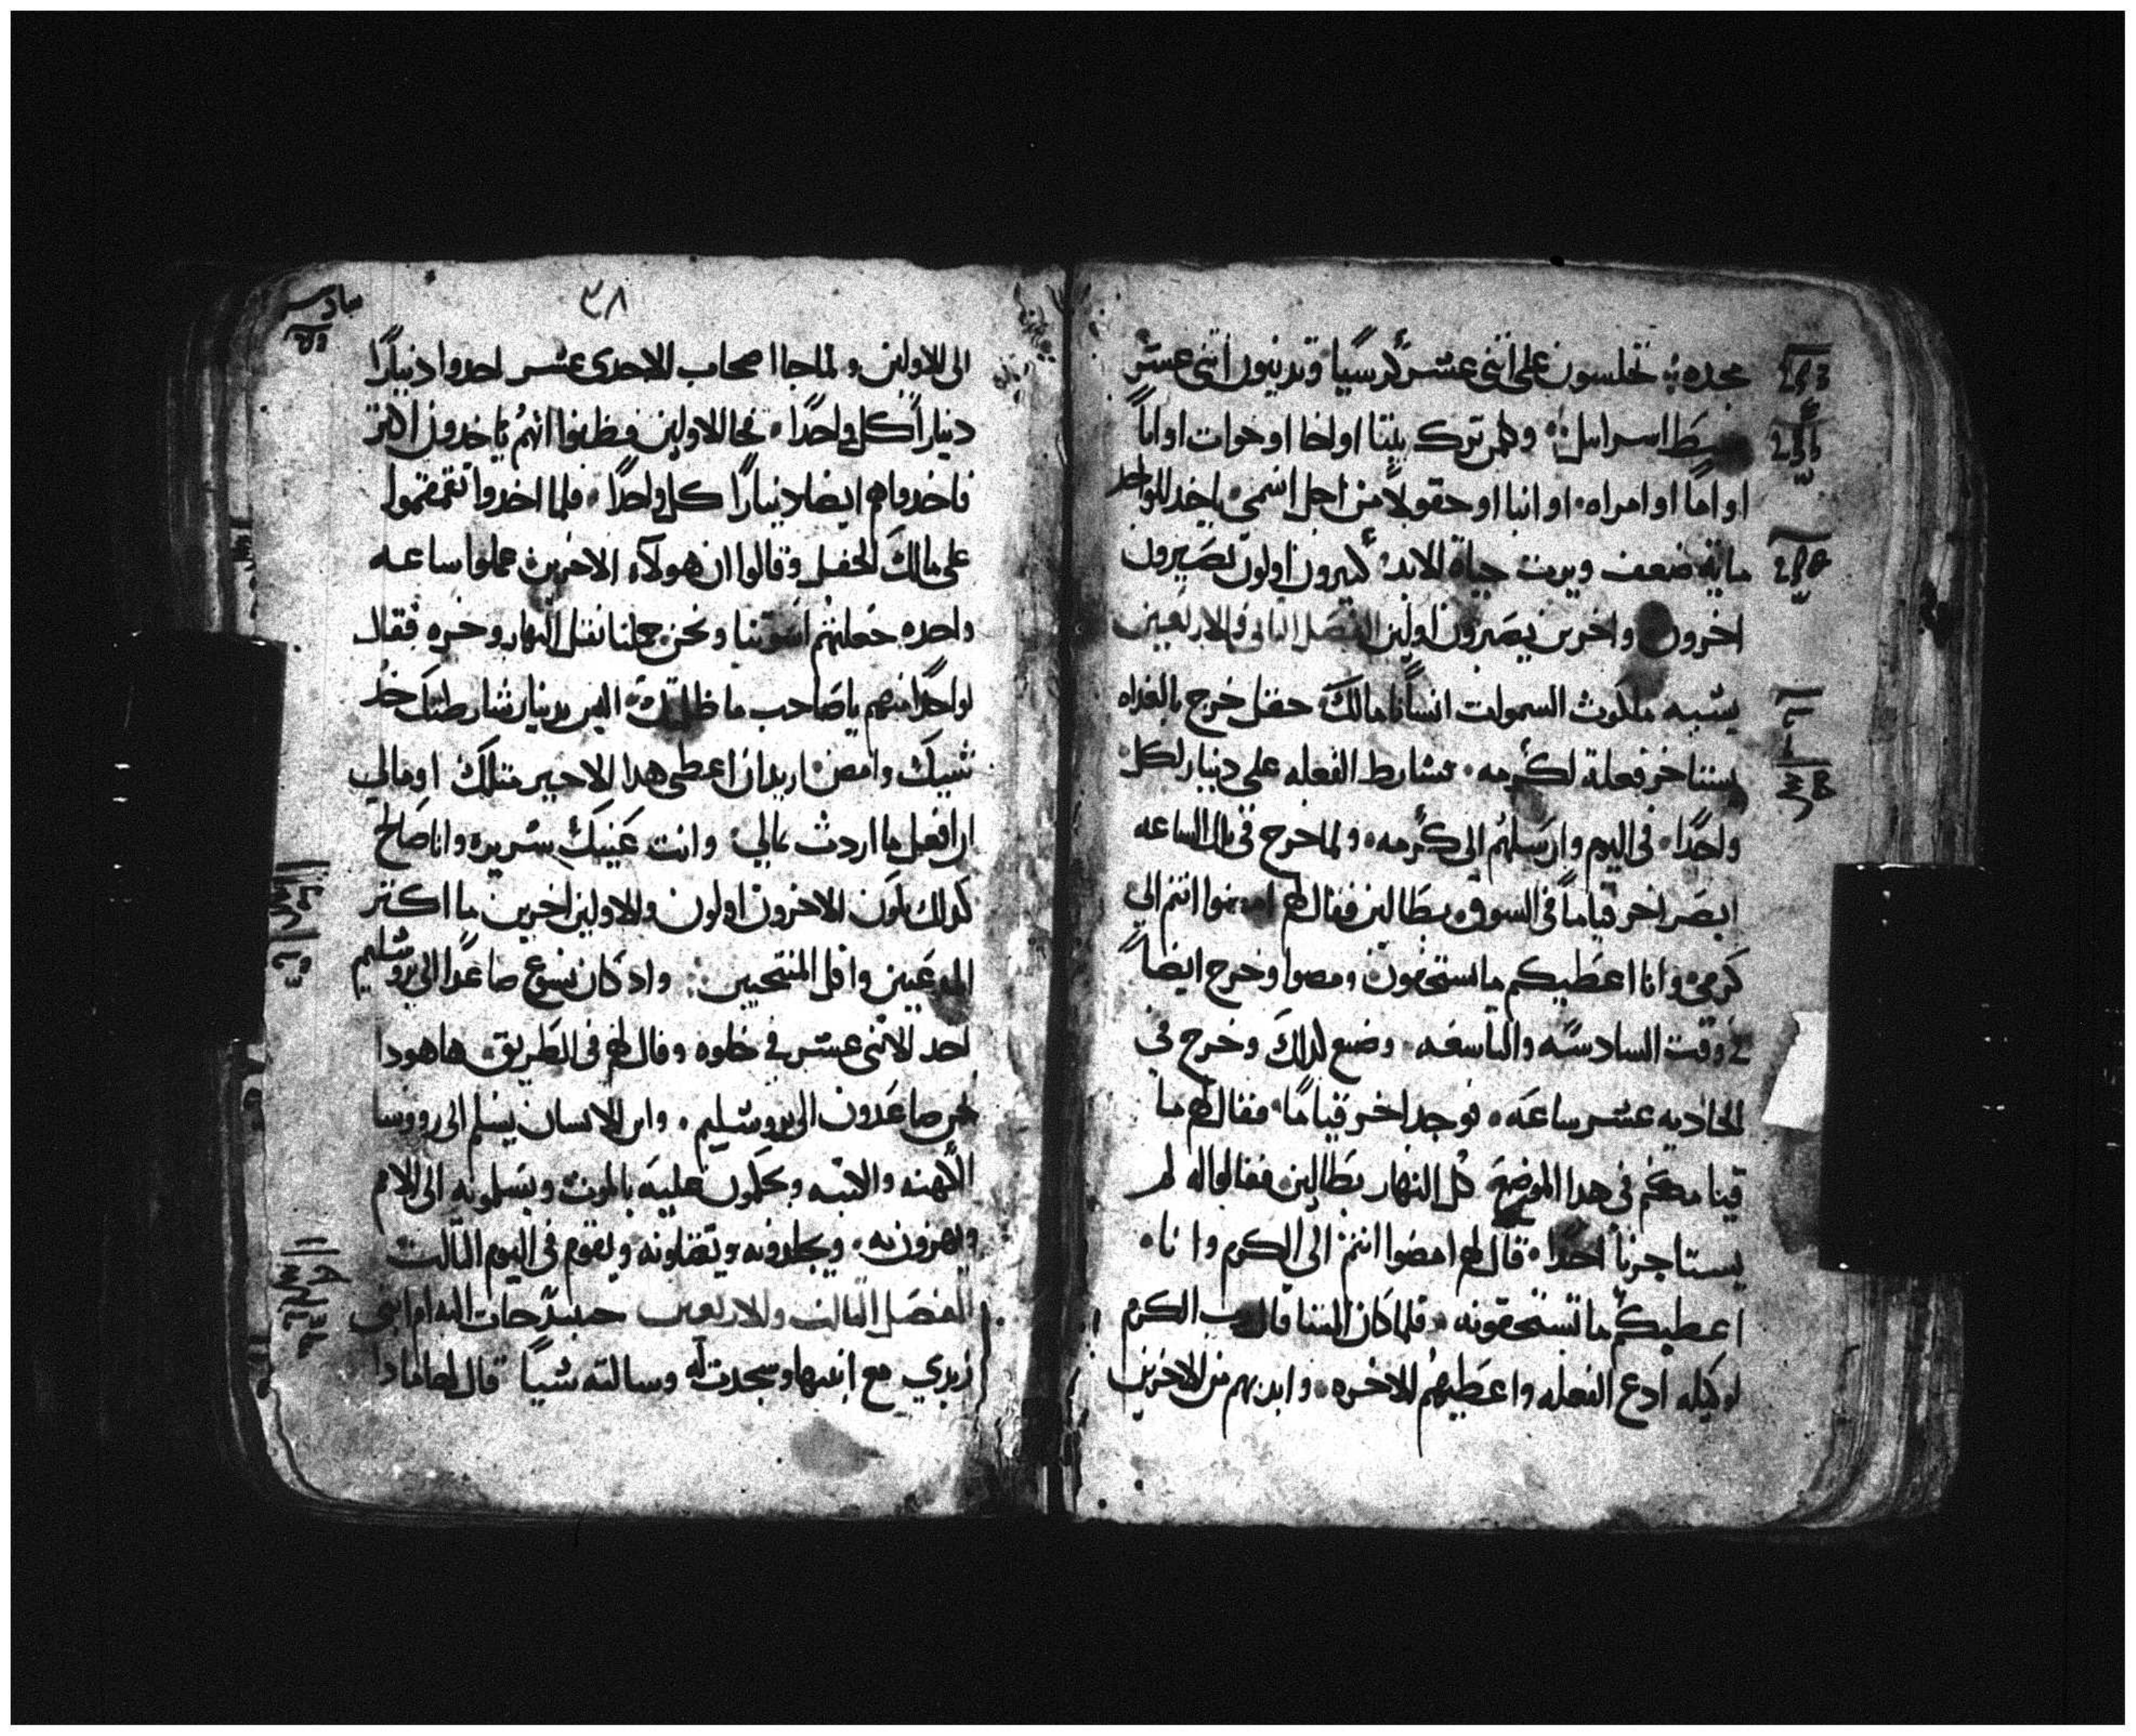 مجده تجلسون على اثنى عشر كرسيا وتدينون اثنى عشر
سبط اسراييل وكلمن ترك بيتا او اخا او خوات او ابا
او اما او امراه او ابنا او حقولا من اجل اسمى ياخد للواحد
مايه ضعف ويرت حياة الابد كتيرون اولون يصيرون
اخرون واخرين يصيرون اولين الفصل التانى والاربعين
يشبه ملكوت السموات انسانا مالك حقل خرج بالغداه
يستاجر فعلة لكرمه فشارط الفعله على دينار لكل
واحدا فى اليوم وارسلهم الى كرمه ولما خرج فى تالت الساعه
ابصر اخر قياما فى السوق بطالين فقال لهم امضوا انتم الى
كرمى وانا اعطيكم ما تستحقون ومضوا وخرج ايضا
فى وقت السادسه والتاسعه وضع لدلك وخرج فى
الحاديه عشر ساعه فوجد اخر قياما فقال لهم ما
قيامكم فى هدا الموضع كل النهار بطالين فقالوا له لم
يستاجرنا احدا قال لهم امضوا انتم الى الكرم وانا
اعطيكم ما تستحقونه فلما كان المسا قال رب الكرم
لوكيله ادع الفعله واعطيهم الاخره وابد بهم من الاخرين
٣٨
سادس
الى الاولين ولما جا اصحاب الاحدى عشر اخدوا دينارا
دينارا كل واحدا فجا الاولين فظنوا انهم ياخدون اكتر
فاخدوا هم ايضا دينارا كل واحدا فلما اخدوا تقمقموا
على مالك الحقل وقالوا ان هولاء الاخرين عملوا ساعه
واحده جعلتهم اسوتنا ونحن حملنا تقل النهار وحره فقال
لواحدا منهم يا صاحب ما ظلمتك اليس بدينار شارطتك خد
شييك وامض اريد ان اعطى هدا الاخير متلك او مالى
ان افعل ما اردت بمالى وانت عينك شريره وانا صالح
كدلك يكون الاخرون اولون والاولين اخرين ما اكتر
المدعيين واقل المنتجبين واد كان يسوع صاعدا الى يروشليم
اخد الاثنى عشر فى خلوه وقال لهم فى الطريق ها هودا
نحن صاعدون الى يروشليم وابن الانسان يسلم الى رووسا
الكهنه والكتبه ويحكمون عليه بالموت ويسلمونه الى الامم
ويهزون به ويجلدونه ويقتلونه ويقوم فى اليوم التالت
الفصل التالت والاربعين حينيد جات اليه ام ابنى
زبدي مع ابنيها وسجدت له وسالته شييا قال لها مادا